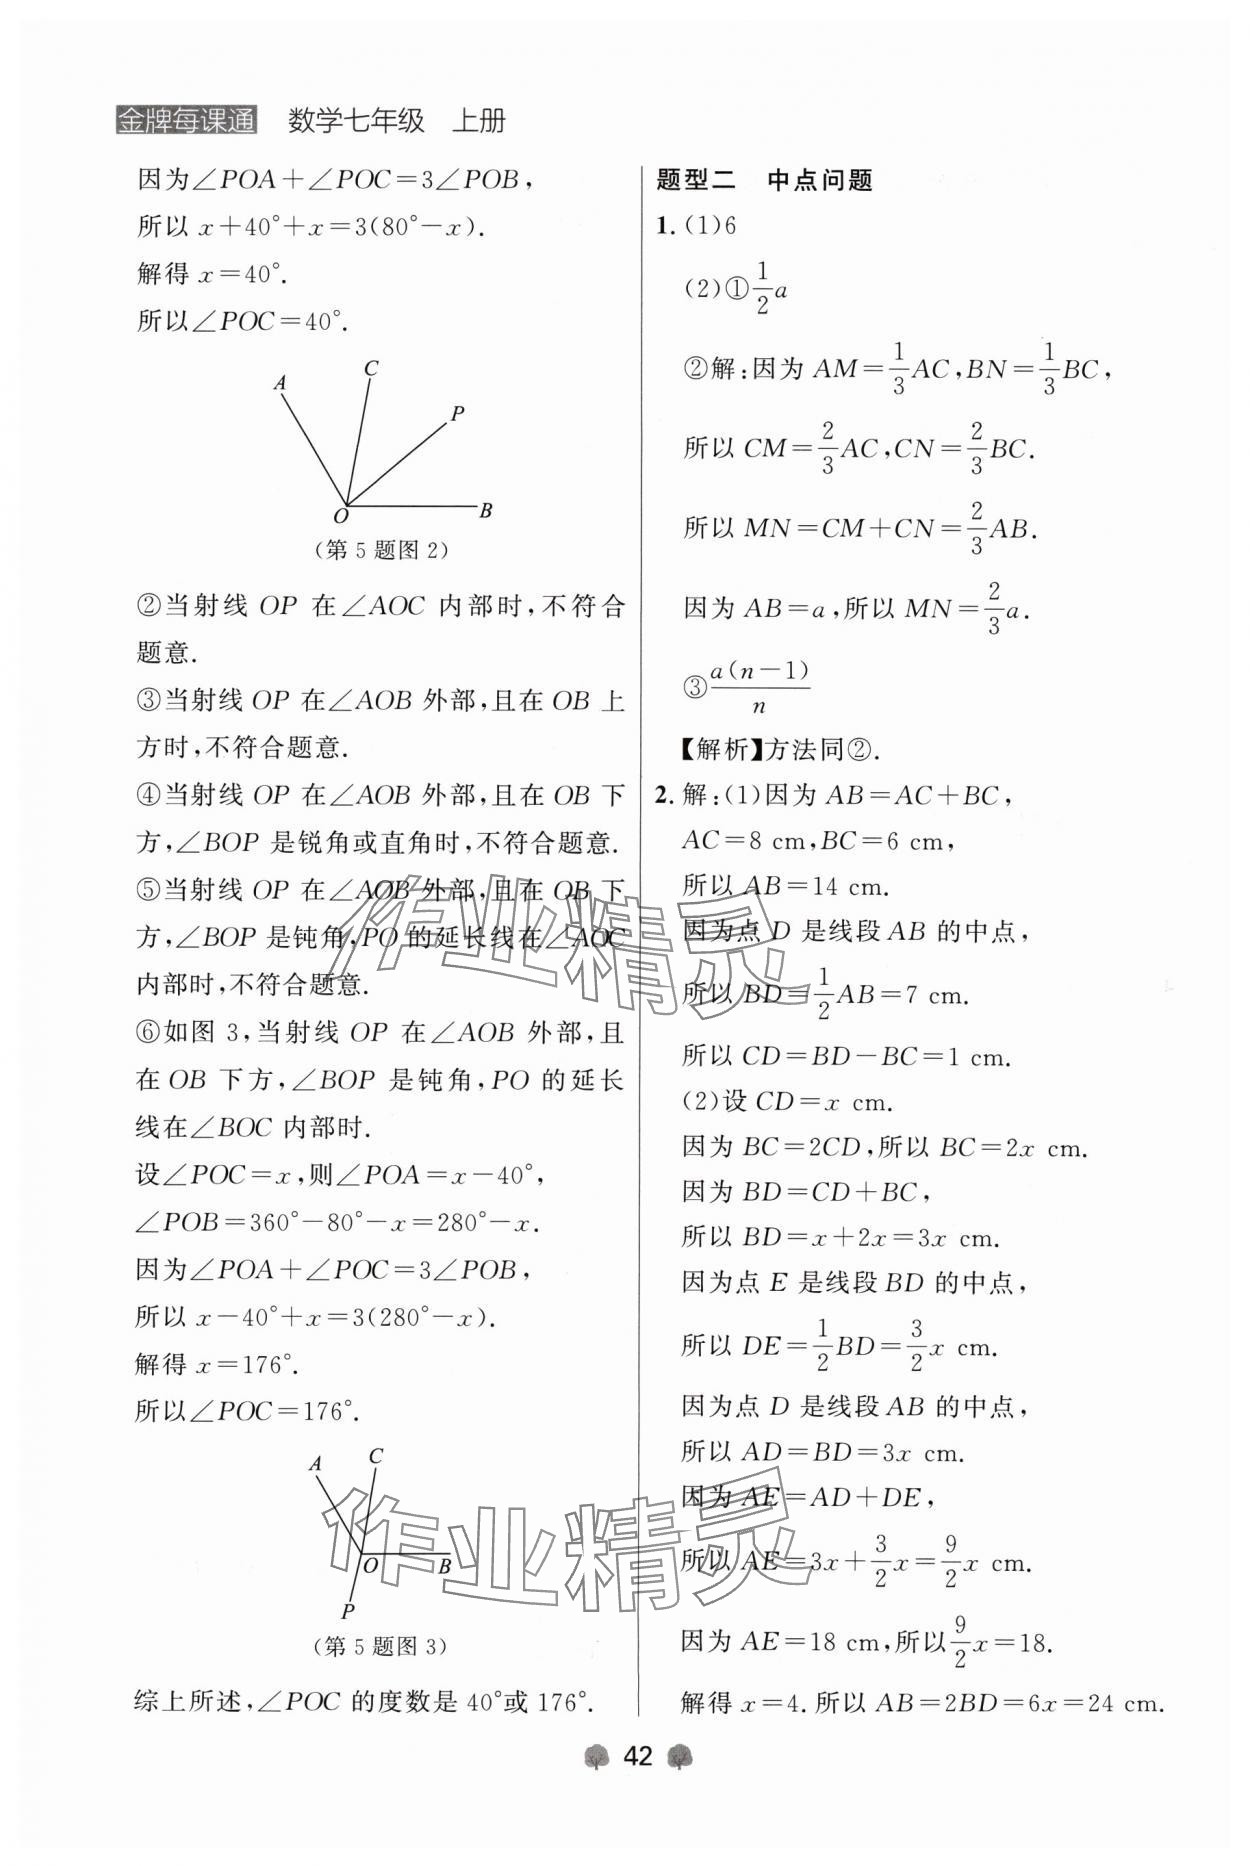 金牌每课通 数学七年级 上册
因为∠POA+∠POC=3∠POB,
所以 x+40°+x=3(80°-x).
解得 x=40°.
所以∠POC=40°.
A
C
P
O
B
(第 5 题图 2)
②当射线 OP 在∠AOC 内部时,不符合
题意.
③当射线 OP 在∠AOB 外部,且在 OB 上
方时,不符合题意.
④当射线 OP 在∠AOB 外部,且在 OB 下
方,∠BOP 是锐角或直角时,不符合题意.
⑤当射线 OP 在∠AOB 外部,且在 OB 下
方,∠BOP 是钝角,PO 的延长线在∠AOC
内部时,不符合题意.
⑥如图 3,当射线 OP 在∠AOB 外部,且
在 OB 下方,∠BOP 是钝角,PO 的延长
线在∠BOC 内部时.
设∠POC=x,则∠POA=x-40°,
∠POB=360°-80°-x=280°-x.
因为∠POA+∠POC=3∠POB,
所以 x-40°+x=3(280°-x).
解得 x=176°.
所以∠POC=176°.
A
C
O
B
P
(第 5 题图 3)
综上所述,∠POC 的度数是 40°或 176°.
题型二 中点问题
1. (1)6
(2)①1/2a
②解:因为 AM=1/3AC,BN=1/3BC,
所以 CM=2/3AC,CN=2/3BC.
所以 MN=CM+CN=2/3AB.
因为 AB=a,所以 MN=2/3a.
③a(n-1)/n
【解析】方法同②.
2. 解:(1)因为 AB=AC+BC,
AC=8 cm,BC=6 cm,
所以 AB=14 cm.
因为点 D 是线段 AB 的中点,
所以 BD=1/2AB=7 cm.
所以 CD=BD-BC=1 cm.
(2)设 CD=x cm.
因为 BC=2CD,所以 BC=2x cm.
因为 BD=CD+BC,
所以 BD=x+2x=3x cm.
因为点 E 是线段 BD 的中点,
所以 DE=1/2BD=3/2x cm.
因为点 D 是线段 AB 的中点,
所以 AD=BD=3x cm.
因为 AE=AD+DE,
所以 AE=3x+3/2x=9/2x cm.
因为 AE=18 cm,所以9/2x=18.
解得 x=4. 所以 AB=2BD=6x=24 cm.
作业精灵
作业精灵
42